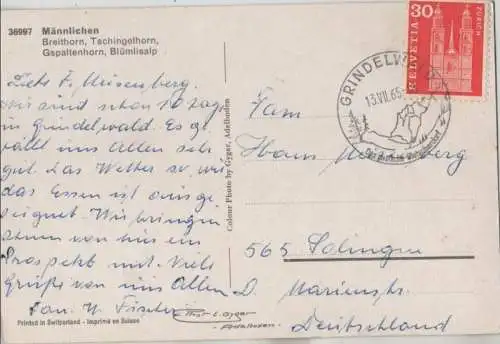 36997 Männlichen
Breithorn, Tschingelhorn,
Gspaltenhorn, Blümlisalp
Liebe F.
wir sind schon 10 Tag
in Grindelwald. Es ge
fällt uns Allen sehr
gut. das Wetter so, wie
das Essen ist ausge
zeignet. Wir bringen
von hier ein
Prospekt mit. Viele
Grüße von uns Allen
Fam. W. Fischer
Printed in Switzerland - Imprimé en Suisse
Colour Photo by Gyger, Adelboden
Gyger
Adelboden
HELVETIA 30
ZÜRICH
GRINDELWALD
13.VII.65
Fam
Hans
565 Solingen
D. Marienstr.
Deutschland